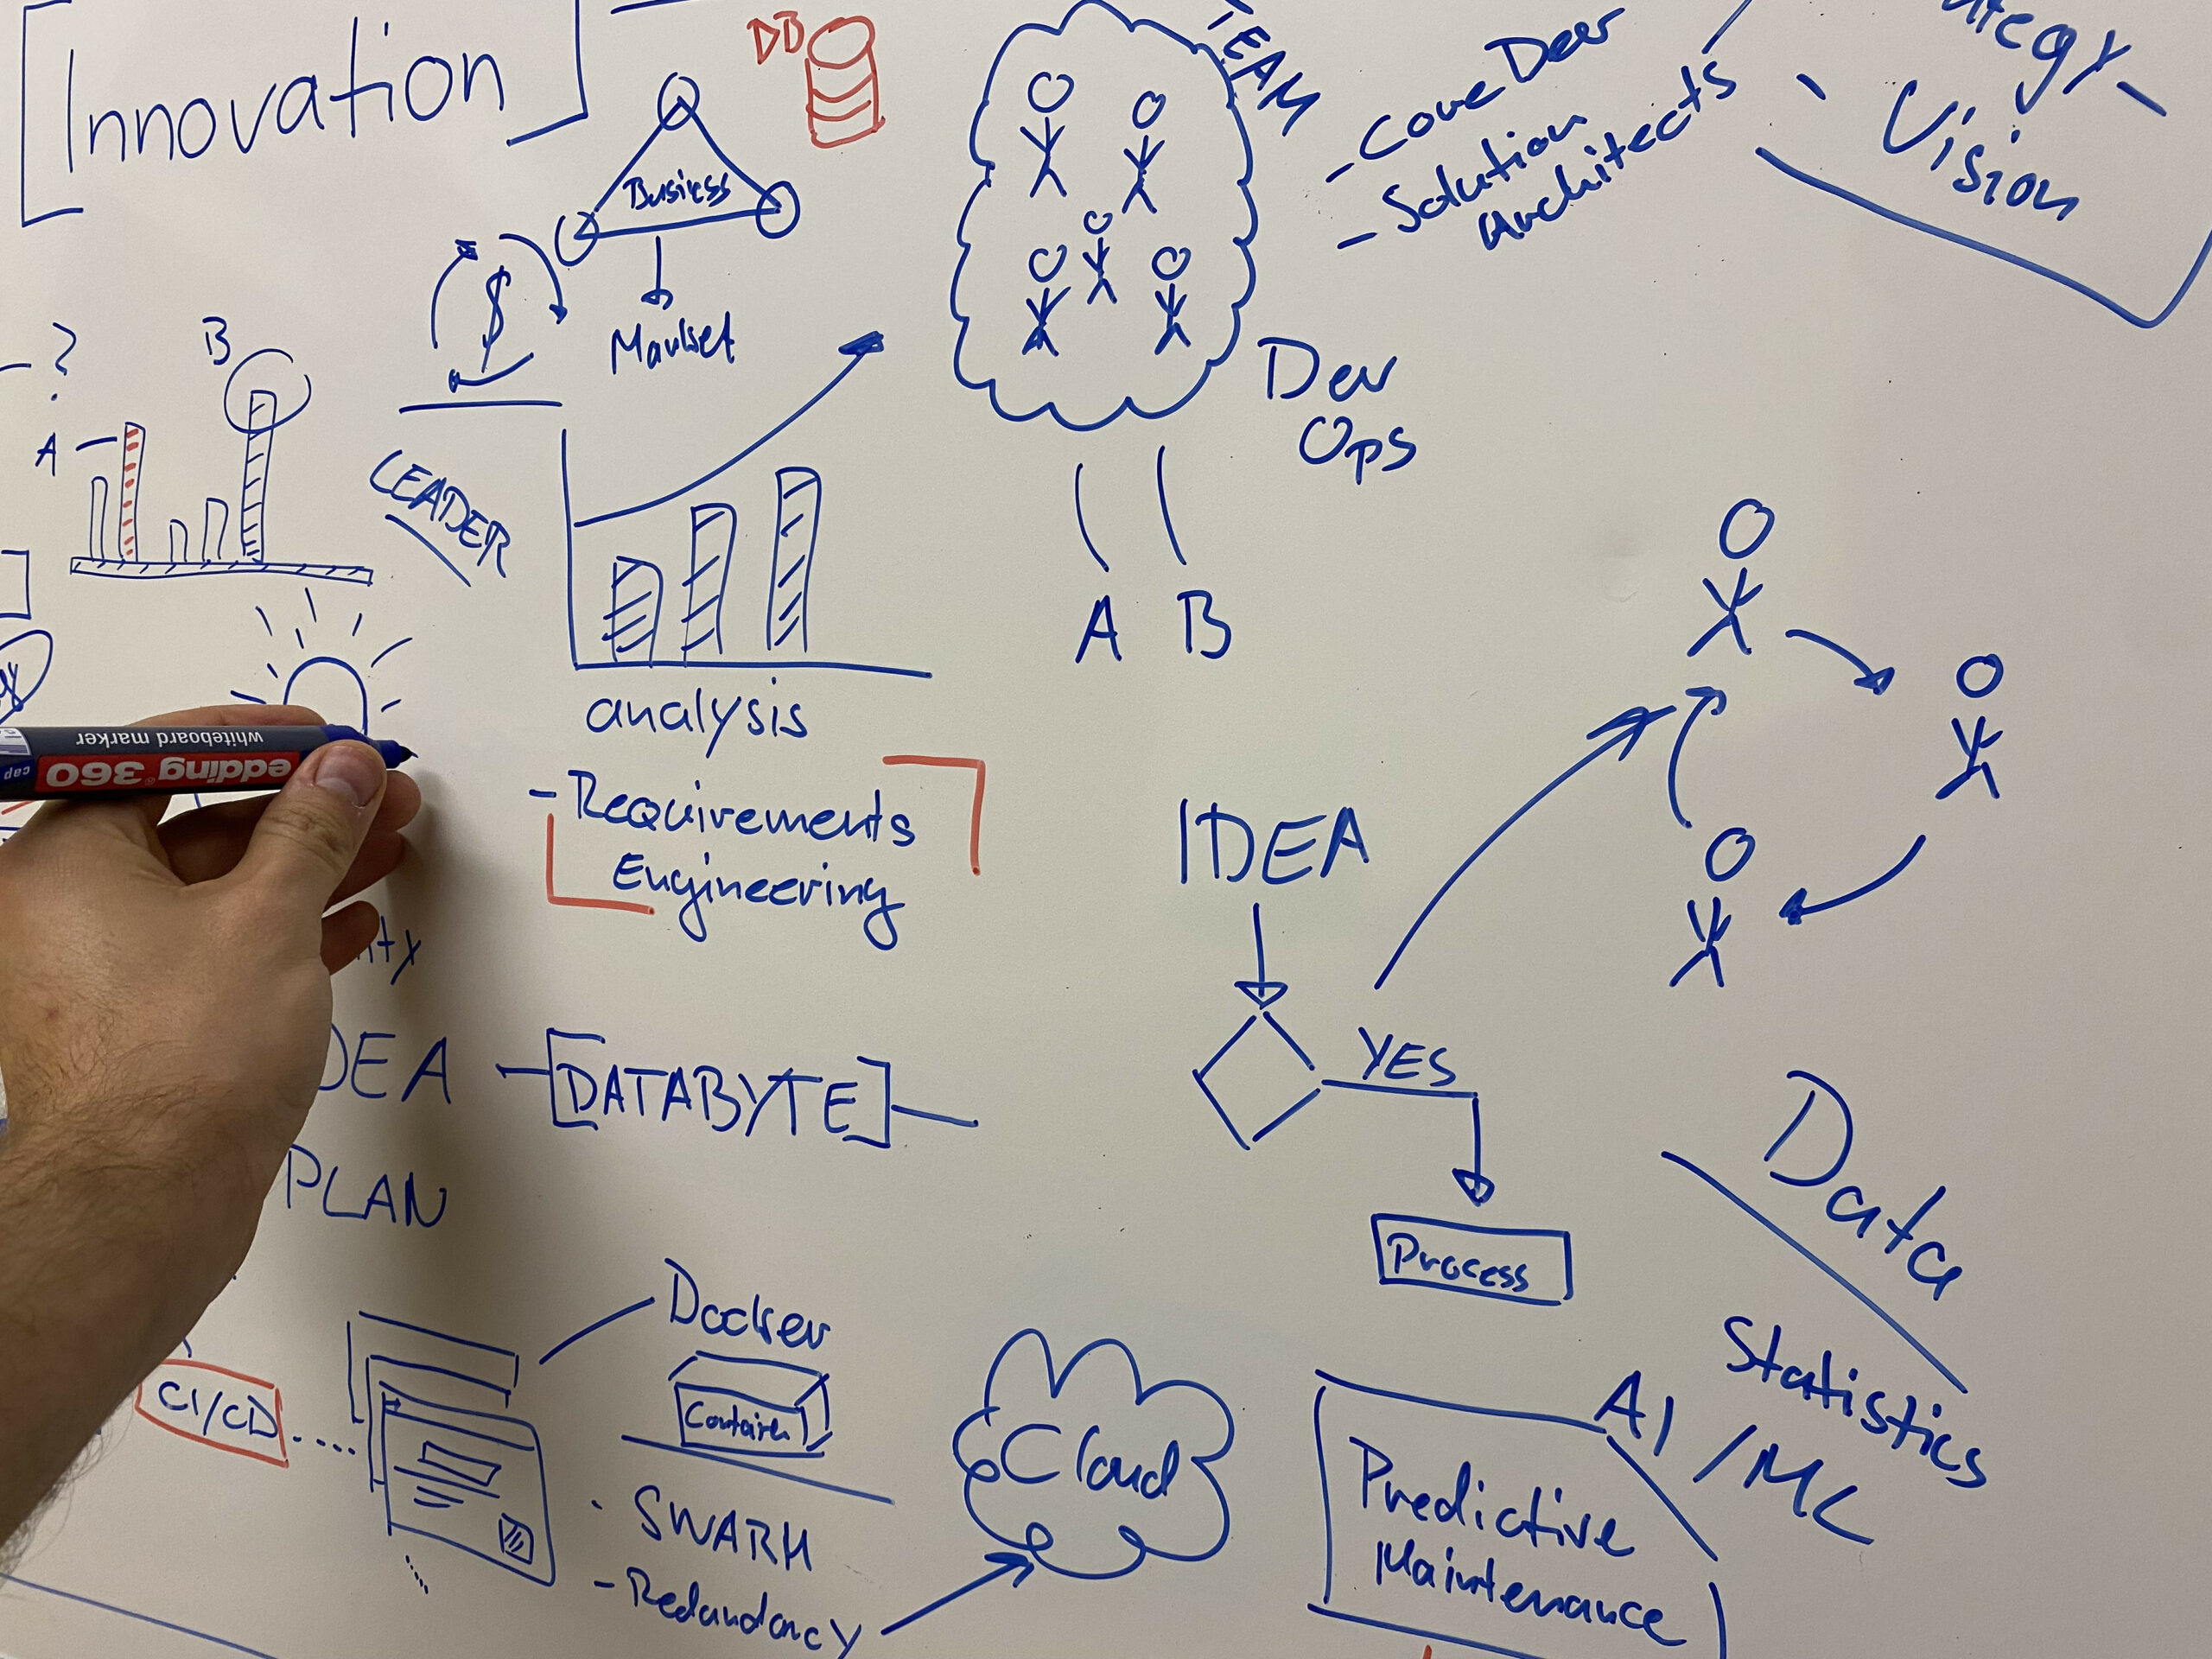 [Innovation]
DB
TEAM
- Core Dev
- Solution
Architects
Vision
Business
Market
$
?
B
A
LEADER
Dev
Ops
A B
analysis
- Requirements
Engineering
whiteboard marker
edding 360
cap
IDEA
YES
Process
[DATABYTE]
PLAN
Data
Statistics
AI / ML
Predictive
Maintenance
Docker
Container
CI/CD
Cloud
SWARM
- Redundancy